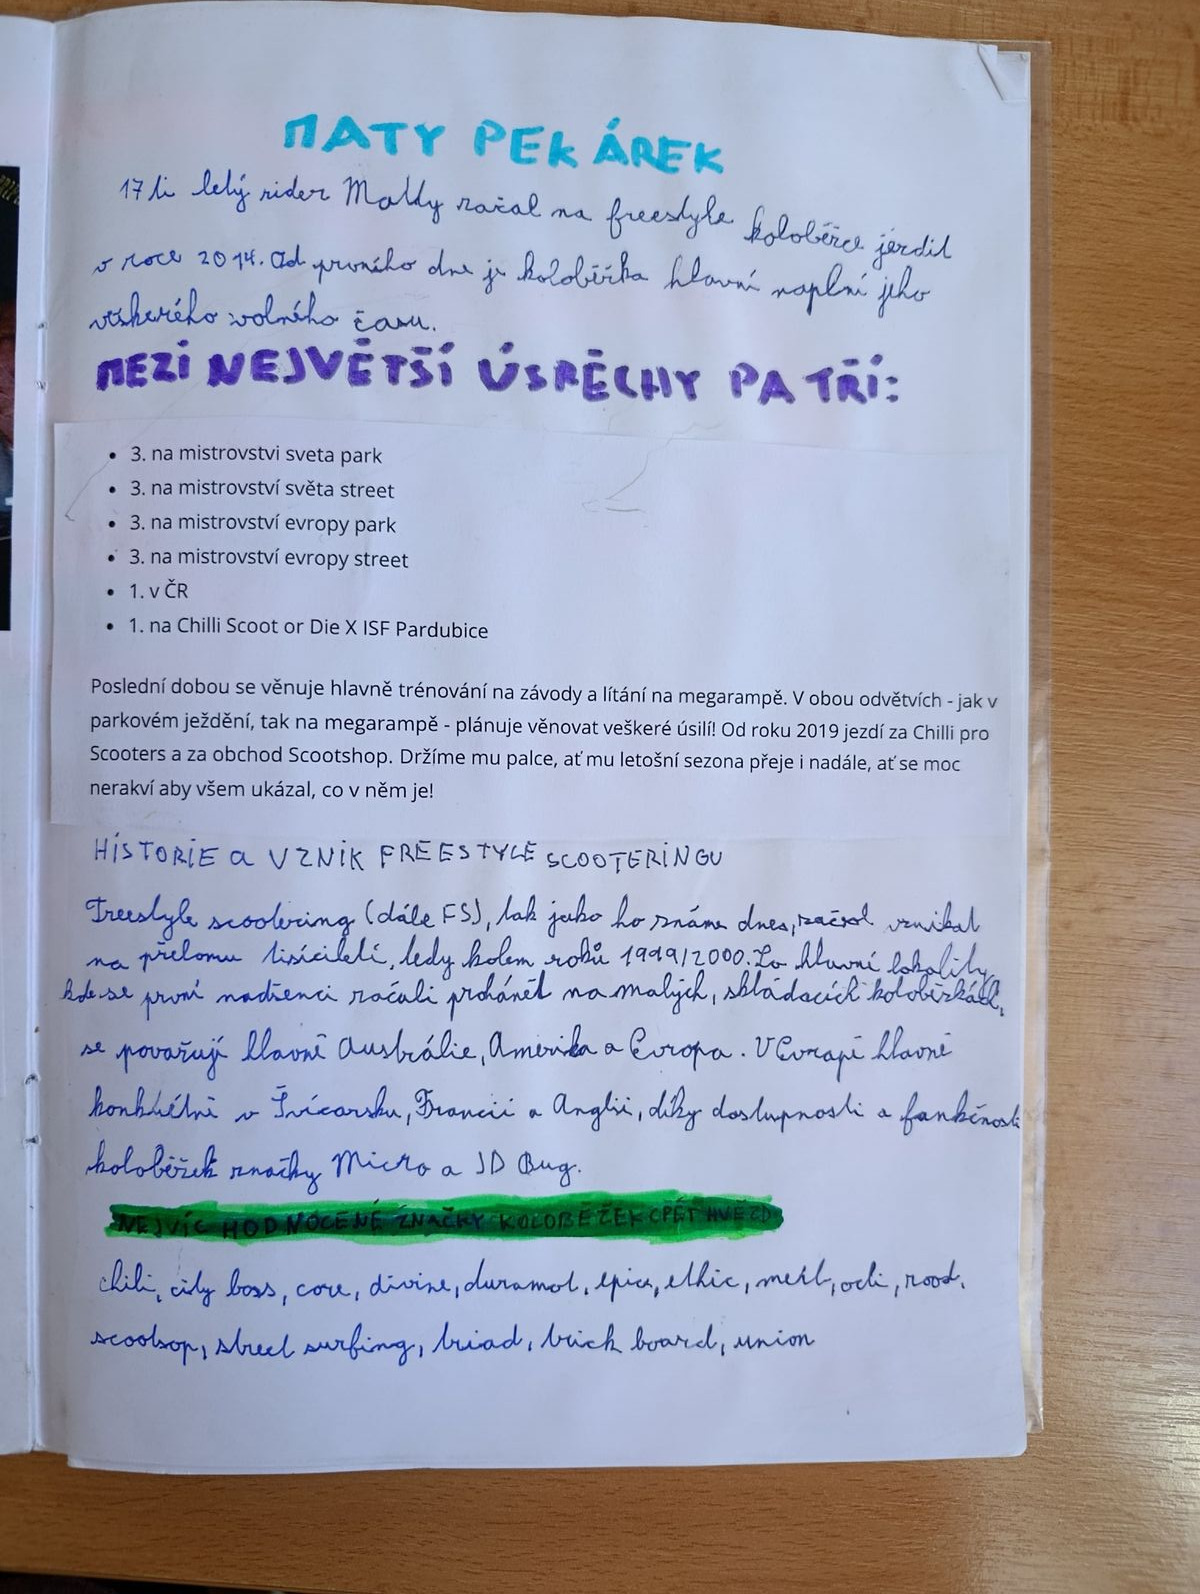 MATY PEKÁREK
17 ti letý rider Matdy začal na freestyle koloběžce jezdit
v roce 2014. Od prvního dne je koloběžka hlavní naplní jeho
veškerého volného času.
MEZI NEJVĚTŠÍ ÚSPĚCHY PATŘÍ:
• 3. na mistrovstvi sveta park
• 3. na mistrovství světa street
• 3. na mistrovství evropy park
• 3. na mistrovství evropy street
• 1. v ČR
• 1. na Chilli Scoot or Die X ISF Pardubice
Poslední dobou se věnuje hlavně trénování na závody a lítání na megarampě. V obou odvětvích - jak v
parkovém ježdění, tak na megarampě - plánuje věnovat veškeré úsilí! Od roku 2019 jezdí za Chilli pro
Scooters a za obchod Scootshop. Držíme mu palce, ať mu letošní sezona přeje i nadále, ať se moc
nerakví aby všem ukázal, co v něm je!
HISTORIE a VZNIK FREESTYLE SCOOTERINGU
Freestyle scootering (dále FS), tak jako ho známe dnes, začal vznikat
na přelomu tisíciletí, tedy kolem roků 1999/2000. Za hlavní lokality,
kde se první nadšenci začali prohánět na malých, skládacích koloběžkách,
se považují hlavně Austrálie, Amerika a Evropa. V Evropě hlavně
konkrétně v Švícarsku, Francii a Anglii, díky dostupnosti a funkčnosti
koloběžek značky Micro a JD Bug.
NEJVÍC HODNOCENÉ ZNAČKY KOLOBĚŽEK CPĚT HVĚZD
chili, city boss, core, divine, duramat, epics, ethic, meil, oeli, root,
scootsop, street surfing, triad, trick board, union